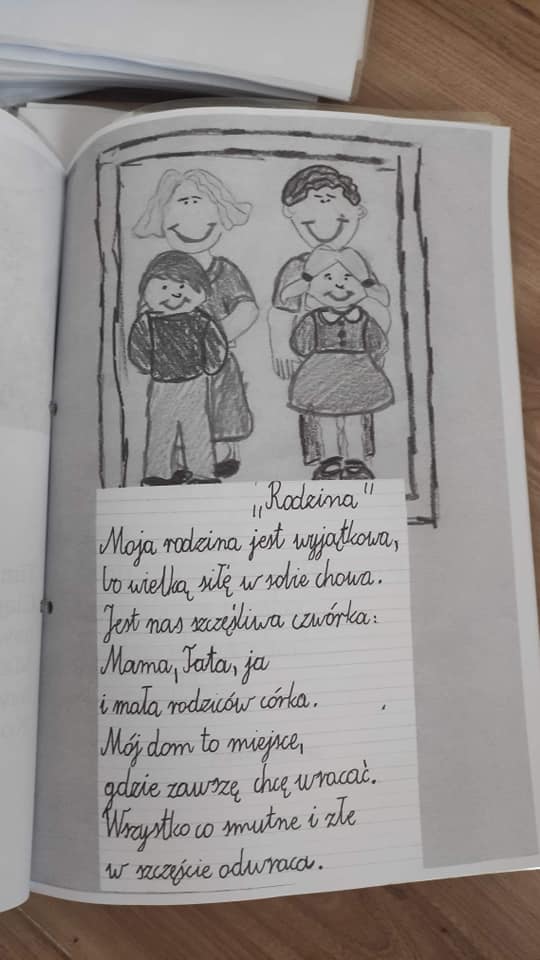 „Rodzina"
Moja rodzina jest wyjątkowa,
bo wielką siłę w sobie chowa.
Jest nas szczęśliwa czwórka:
Mama, Tata, ja
i mała rodziców córka.
Mój dom to miejsce,
gdzie zawszę chcę wracać.
Wszystko co smutne i złe
w szczęście odwraca.